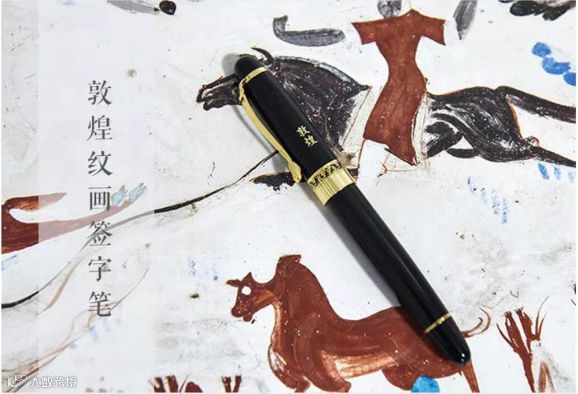 敦煌纹画签字笔
敦煌
大数跨境